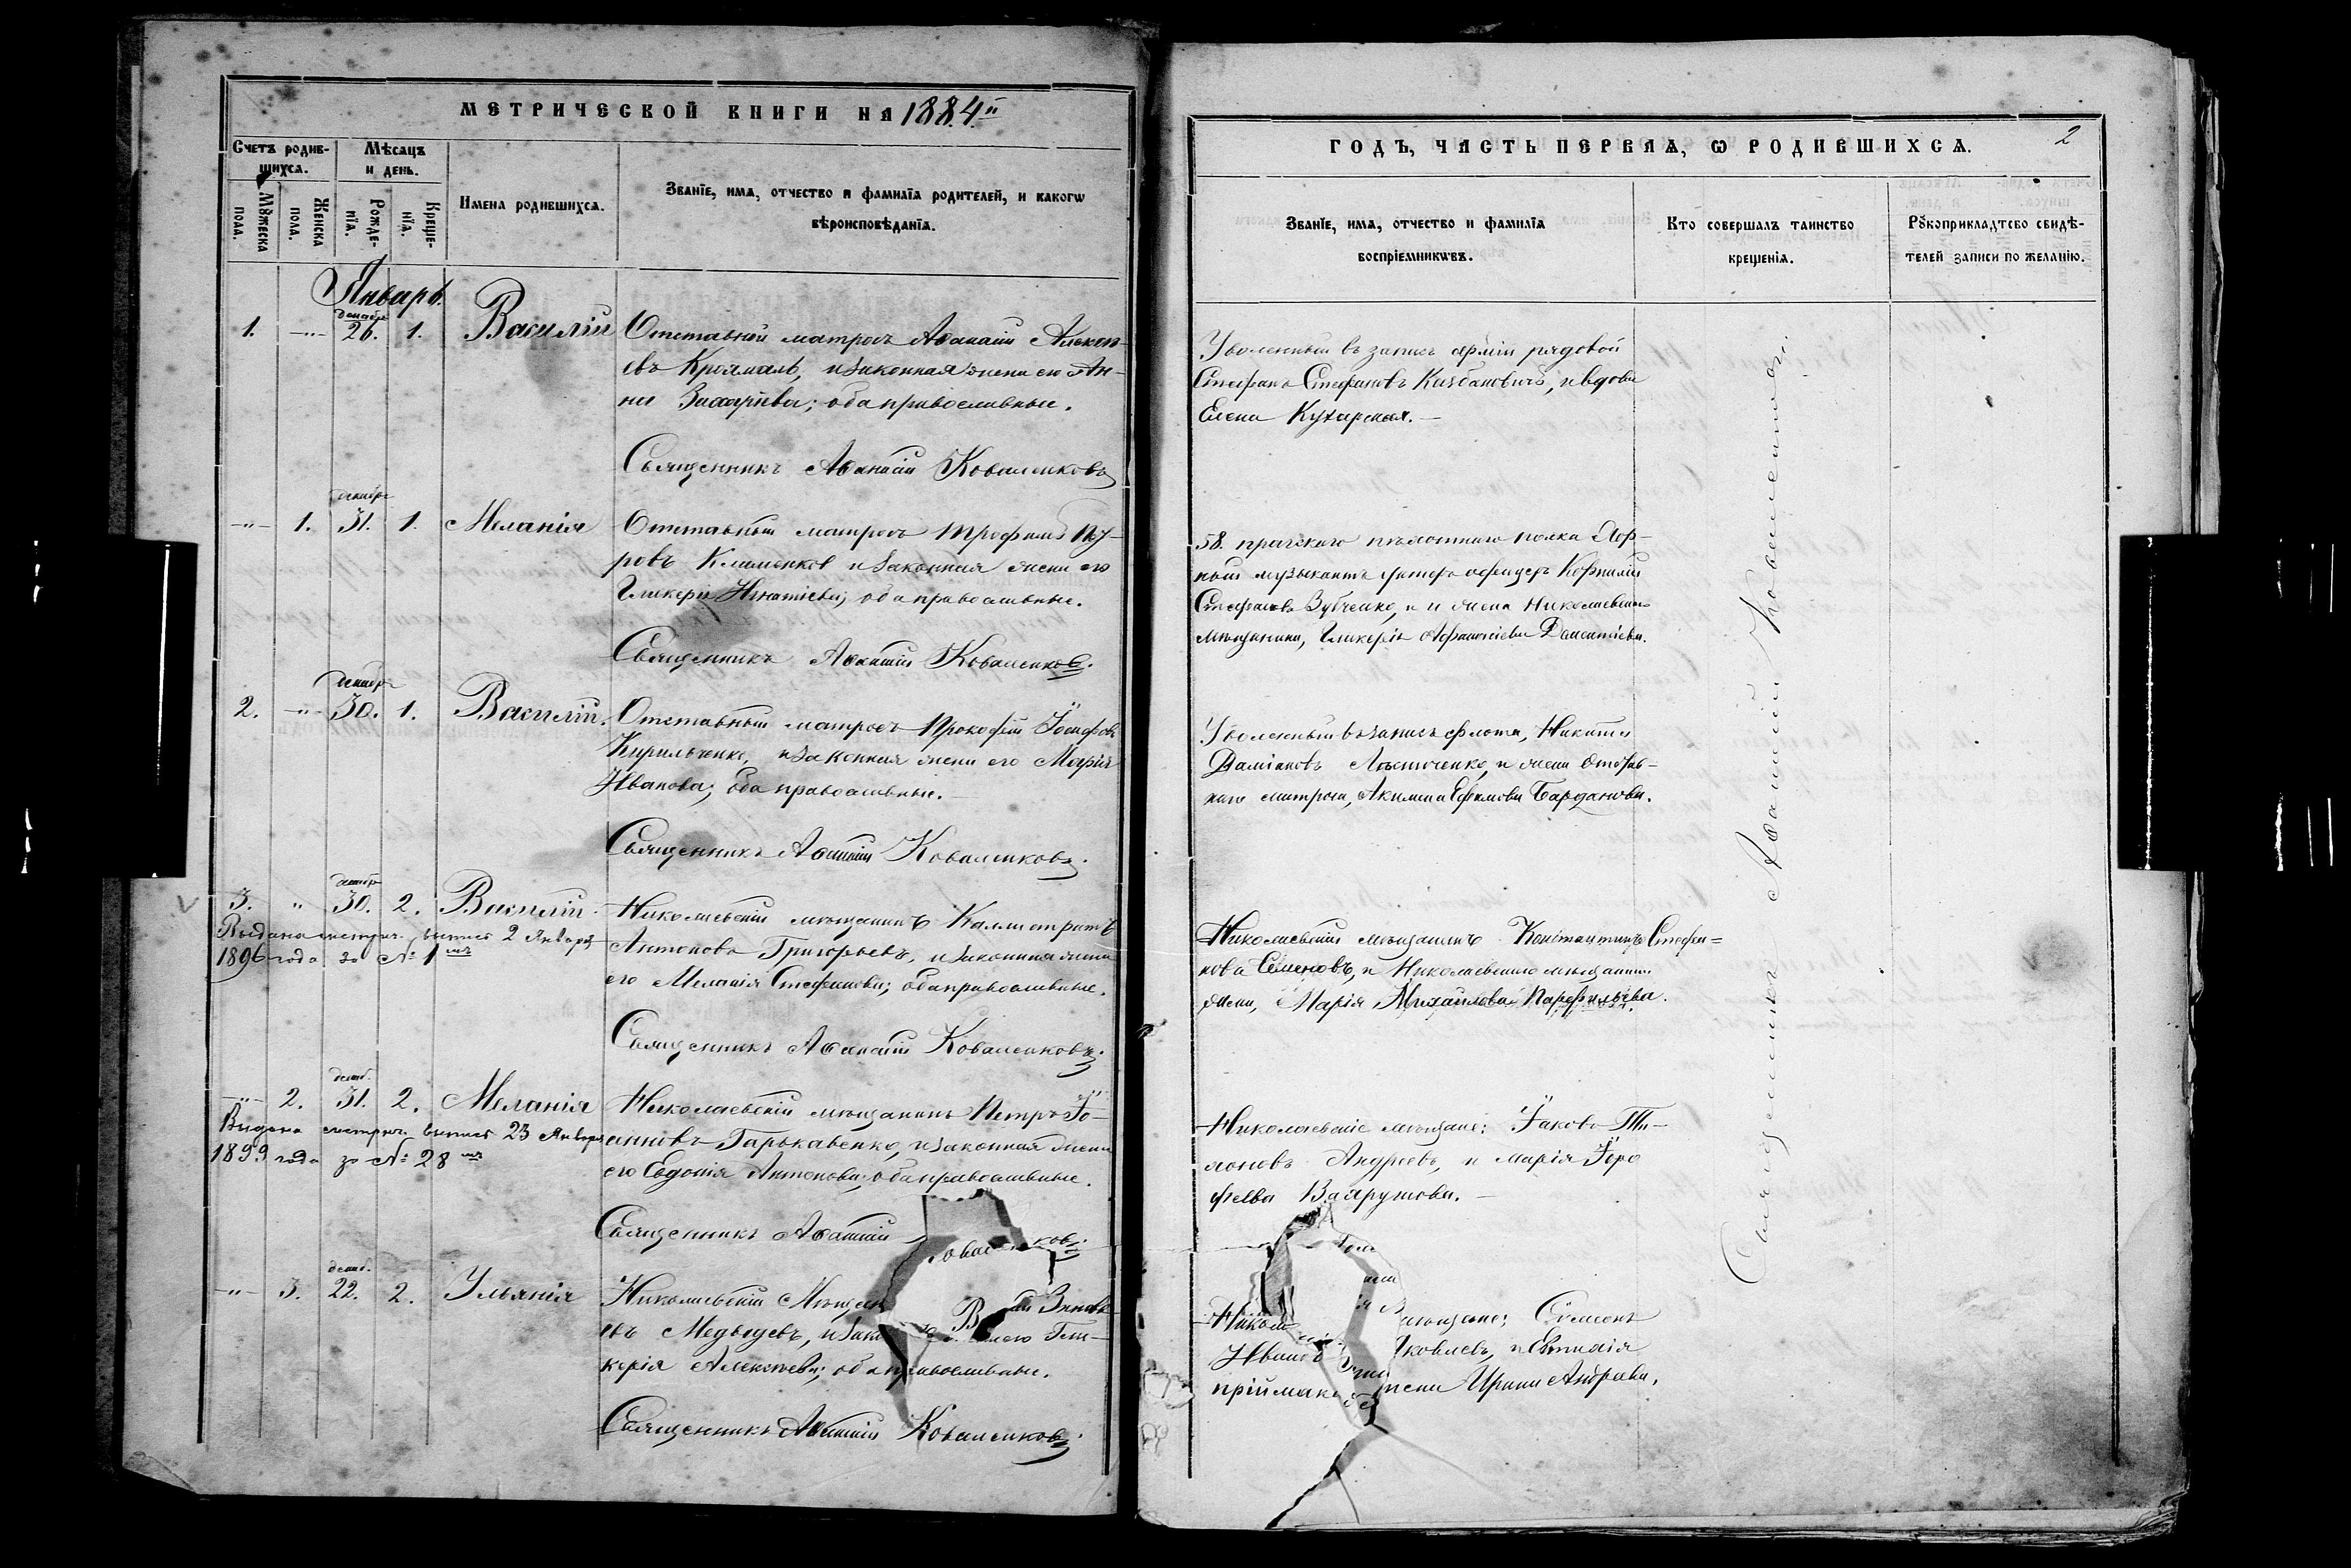 МЕТРИЧЕСКОЙ КНИГИ НА 1884й
Счетъ родившихсѧ.
Мѣсѧцъ и день.
Мꙋжеска пола.
Женска пола.
Рожденїѧ.
Крещенїѧ.
Имена родившихсѧ.
Званїе, имѧ, отчество и фамилїѧ родителей, и какогѡ
вѣроисповѣданїѧ.
Январь.
декабря
1. -"- 26. 1. Василій
Отставной матросъ Аѳанасій Алексѣ-
евъ Крамаль, и законная жена его Ан-
на Захарієва; оба православные.
Священникъ Аѳанасій Коваленковъ
декабря
-"- 1. 31. 1. Меланія
Отставный матросъ Трофимъ
ровъ Клименков и законная жена его
Гликерія Игнатіева; оба православные.
Священникъ Аѳанасій Коваленков.
декабря
2. -"- 30. 1. Василій.
Отставный матросъ Прокофій Іосифовъ
Кирильченко, и законная жена его Марія
Иванова; оба православные.
Священникъ Аѳанасій Коваленковъ.
декабря
3. " 30. 2. Василій.
Выдана метрич. выпись 2 Января
1896 года за № 1мъ
Николаевскій мѣщанинъ Каллистратъ
Антоновъ Григорьевъ, и законная жена
его Меланія Стефанова; оба православные.
Священникъ Аѳанасій Коваленковъ.
декаб.
-"- 2. 31. 2. Меланія
Выдана метрич. выпись 23 Января
1899 года за № 28мъ
Николаевскій мѣщанинъ Петръ Іо-
анновъ Гарькавенко, и законная жена
его Евдокія Антонова; оба православные.
Священникъ Аѳанасій оваленковъ.
декаб.
-"- 3. 22. 2. Ульянія
Николаевскій Мѣщан
евъ Медведевъ, и зак его Гли-
керія Алексѣева; оба православные.
Священникъ Аѳанасій Коваленковъ.
ГОДЪ, ЧАСТЬ ПЕРВАѦ, Ѡ РОДИВШИХСѦ.
2
Званїе, имѧ, отчество и фамилїѧ
воспрїемникѡвъ.
Кто совершалъ таинство
крещенїѧ.
Рꙋкоприкладтсво свидѣ-
телей записи по желанїю.
Уволенный въ запасъ арміи рядовой
Стефанъ Стефановъ Казбановичъ, и вдова
Елена Кухарская.
58. пражскаго пѣхотнаго полка
ный музыкантъ унтеръ офицеръ Корнилій
Стефановъ Зубченко, и жена Николаевскаго
мѣщанина, Гликерія
Уволенный въ запасъ флота, Никита
Даміановъ и жена Отстав-
наго матроса, Акилина Ефимова Барданова.
Николаевскій мѣщанинъ Константинъ Стефа-
новъ Семеновъ, и Николаевскаго мѣщанина
жена, Марія Михайлова Парфильева.
Николаевскіе мѣщане: Іаковъ
Андреевъ, и Марія
Вахрушова.
Никол мѣщане: Симеонъ
Иванов Яковлевъ, и Евѳимія
пріймак жена Ирина Андреева.
Священникъ Аѳанасій Коваленковъ.